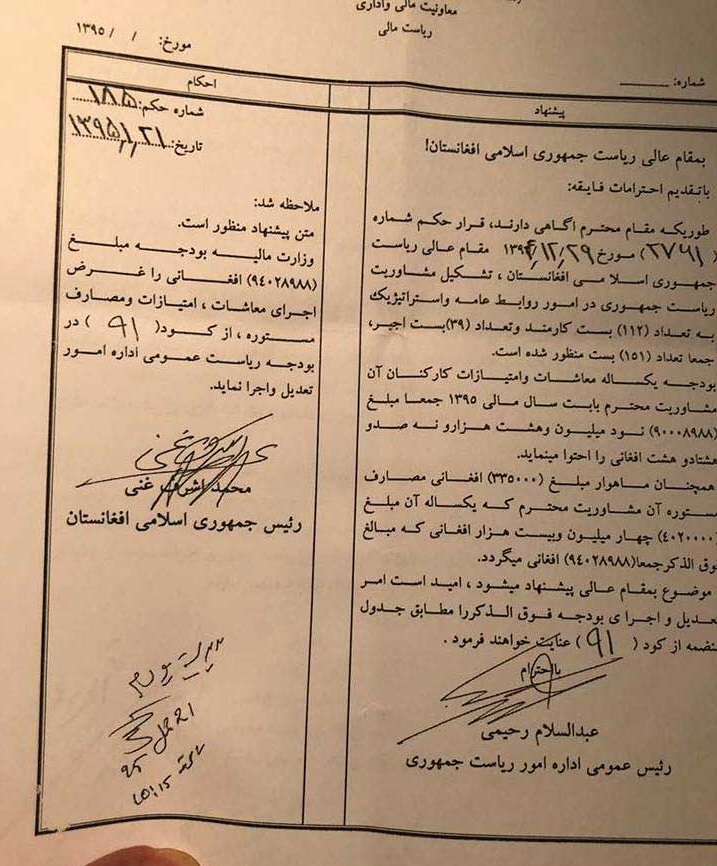 معاونیت مالی واداری
ریاست مالی
مورخ: / / ۱۳۹۵
شماره:
پیشنهاد
بمقام عالی ریاست جمهوری اسلامی افغانستان!
باتقدیم احترامات فایقه:
طوریکه مقام محترم آگاهی دارند، قرار حکم شماره
(۲۷۶۱) مورخ ۱۳۹۴/۱۲/۲۹ مقام عالی ریاست
جمهوری اسلامی افغانستان ، تشکیل مشاوریت
ریاست جمهوری در امور روابط عامه واستراتیژیک
به تعداد (۱۱۲) بست کارمند وتعداد (۳۹)بست اجیر،
جمعا تعداد (۱۵۱) بست منظور شده است.
بودجه یکساله معاشات وامتیازات کارکنان آن
مشاوریت محترم بابت سال مالی ۱۳۹۵ جمعا مبلغ
(۹۰۰۰۸۹۸۸) نود میلیون وهشت هزارو نه صدو
هشتادو هشت افغانی را احتوا مینماید.
همچنان ماهوار مبلغ (۳۳۵۰۰۰) افغانی مصارف
مستوره آن مشاوریت محترم که یکساله آن مبلغ
(۴۰۲۰۰۰۰) چهار میلیون وبیست هزار افغانی که مبالغ
فوق الذکرجمعا(۹۴۰۲۸۹۸۸) افغانی میگردد.
موضوع بمقام عالی پیشنهاد میشود ، امید است امر
تعدیل و اجرا ی بودجه فوق الذکررا مطابق جدول
منضمه از کود ( ۹۱ ) عنایت خواهند فرمود .
بااحترام
عبدالسلام رحیمی
رئیس عمومی اداره امور ریاست جمهوری
احکام
شماره حکم: ۱۸۵
تاریخ: ۱۳۹۵/۱/۲۱
ملاحظه شد:
متن پیشنهاد منظور است.
وزارت مالیه بودجه مبلغ
(۹۴۰۲۸۹۸۸) افغانی را غرض
اجرای معاشات ، امتیازات ومصارف
مستوره ، از کود( ۹۱ ) در
بودجه ریاست عمومی اداره امور
تعدیل واجرا نماید.
محمد اشرف غنی
رئیس جمهوری اسلامی افغانستان
۲۱ حمل
۹۵